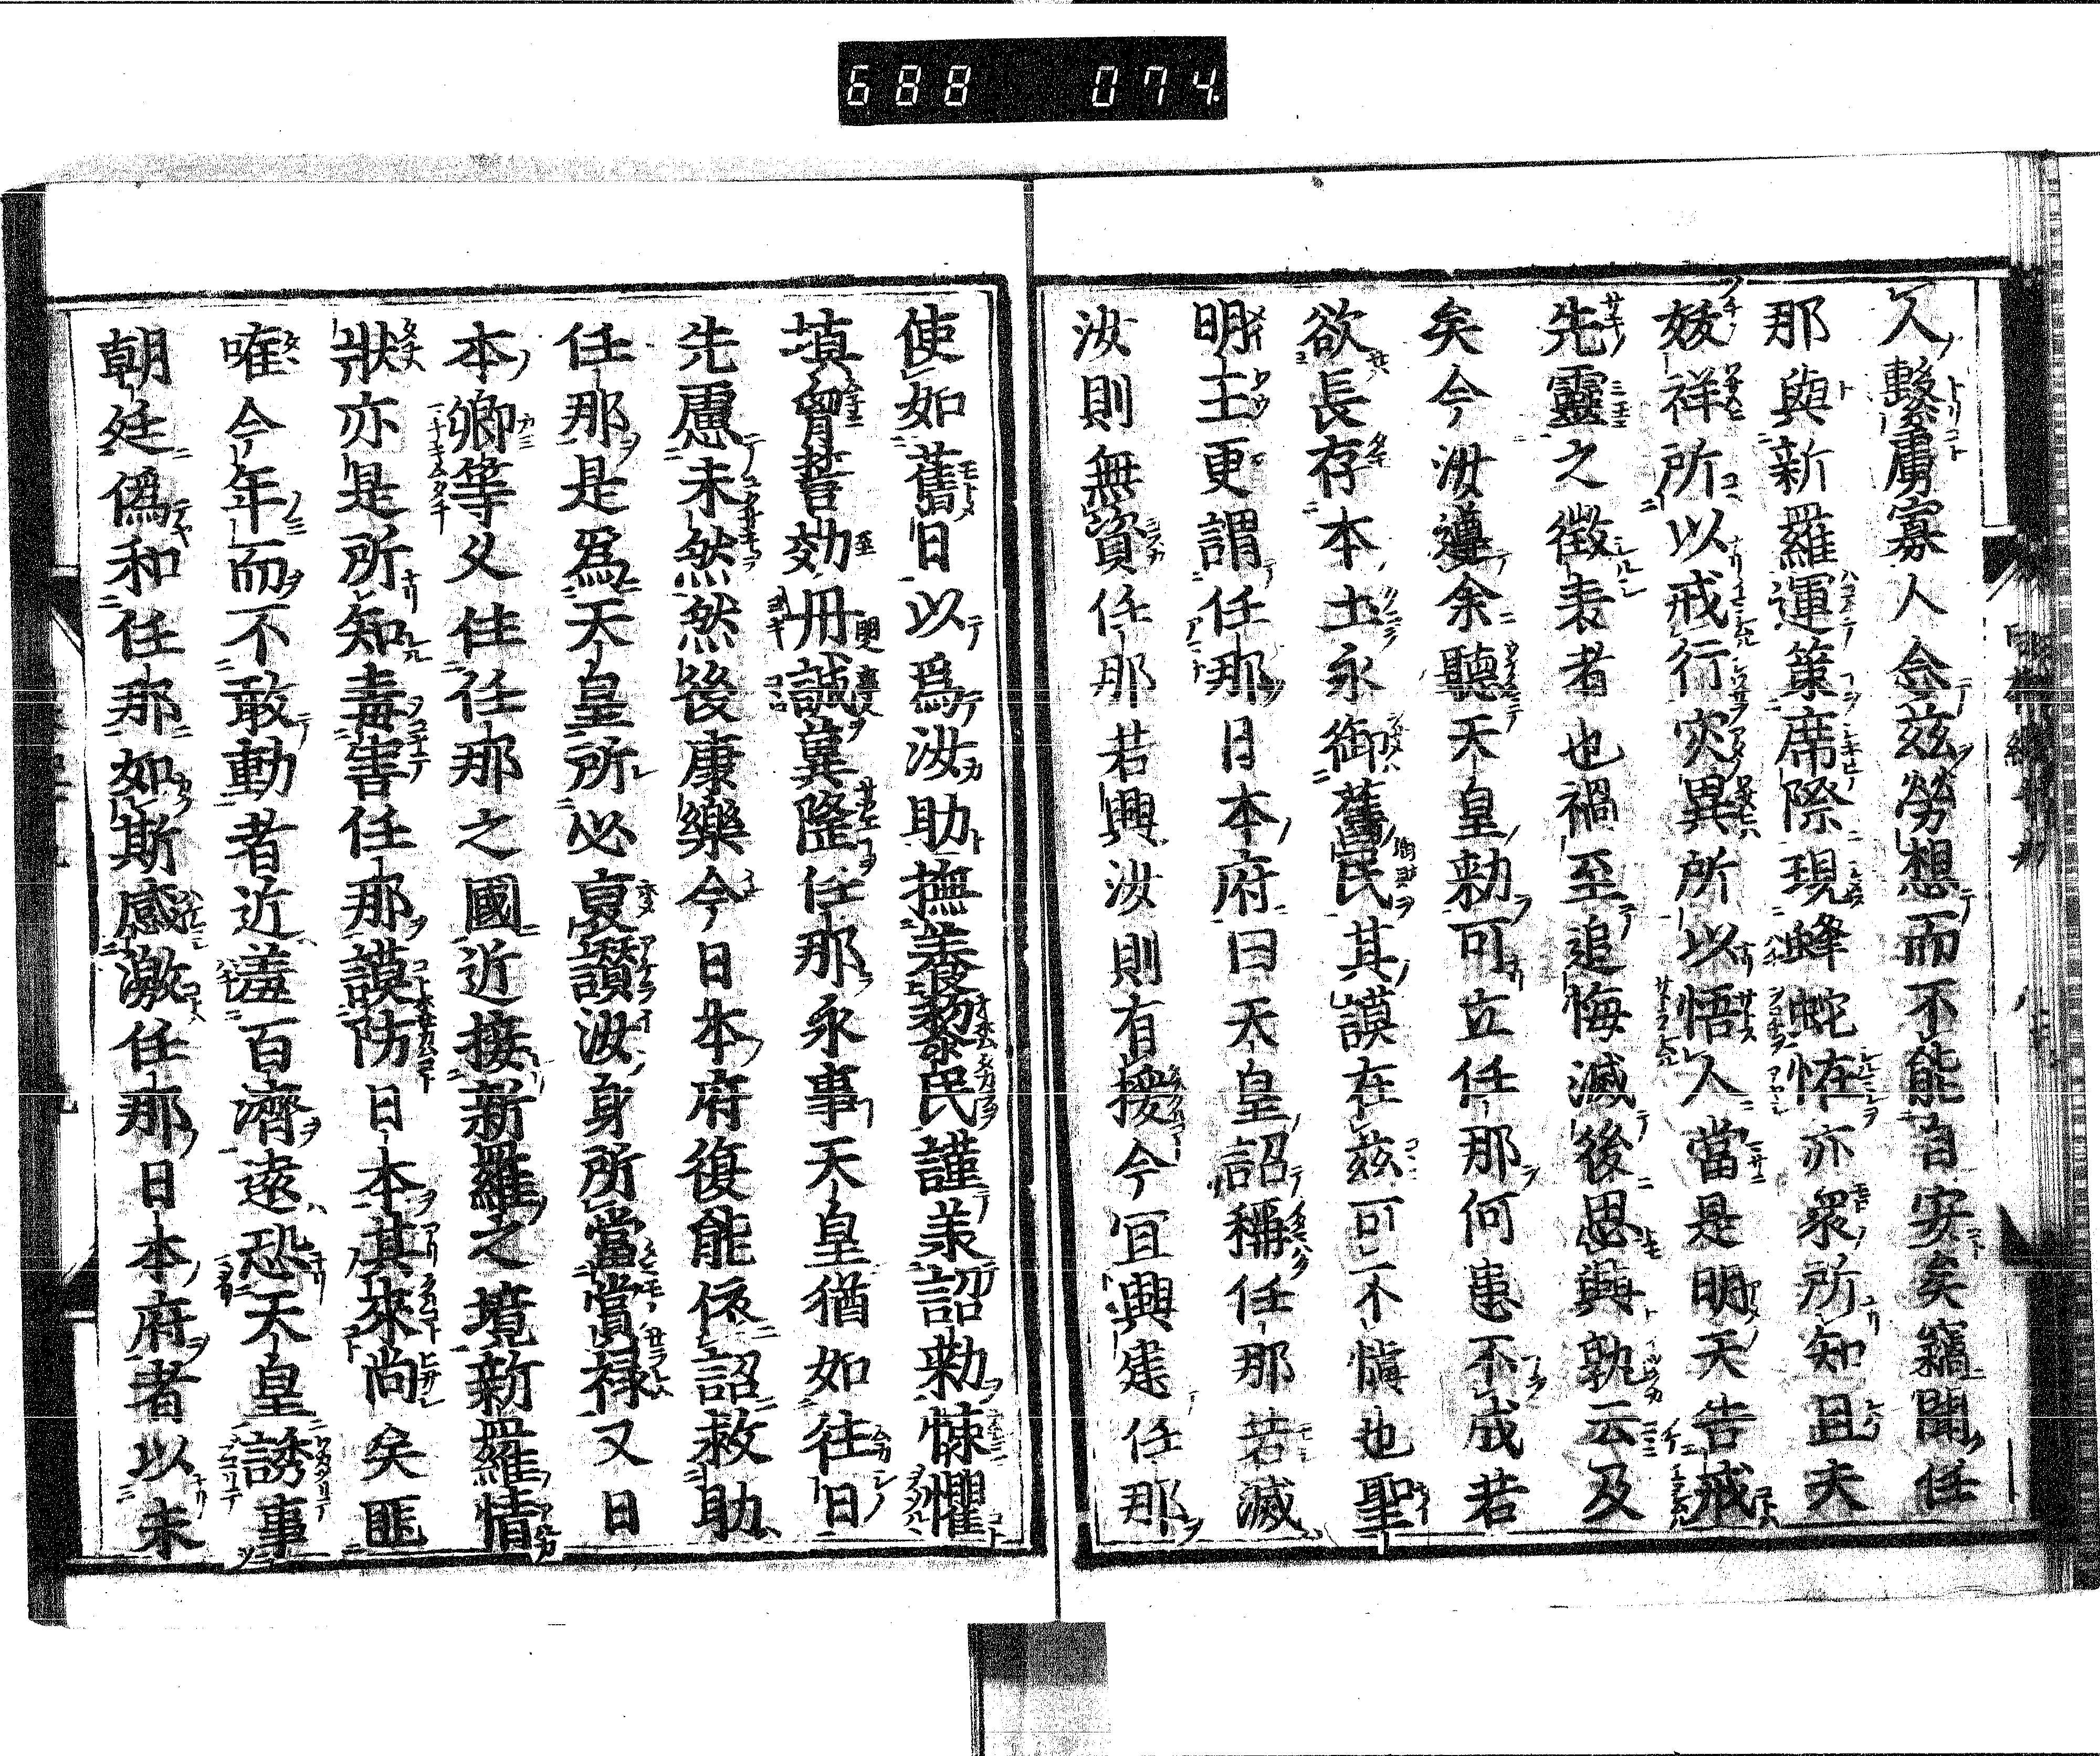 688 074
久繫虜寡人念玆勞想而不能自安矣竊聞任
那與新羅運策席際現蜂蛇怪亦衆所知且夫
妖祥所以戒行灾異所以悟人當是明天告戒
先靈之徴表者也禍至追悔滅後思興孰云及
矣今汝遵余聽天皇勅可立任那何患不成若
欲長存本土永御舊民其謨在玆可不愼也聖
明王更謂任那日本府曰天皇詔稱任那若滅
汝則無資任那若興汝則有援今宜興建任那
使如舊日以爲汝助撫養黎民謹羕詔勅悚懼
塡胷誓効丹誠冀隆任那永事天皇猶如往日
先慮未然然後康樂今日本府復能依詔救助
任那是爲天皇所必褒讃汝身所當賞禄又日
本卿等久住任那之國近接新羅之境新羅情
狀亦是所知毒害任那謨防日本其來尚矣匪
唯今年而不敢動者近羞百濟遠恐天皇誘事
朝廷僞和任那如斯感激任那日本府者以未